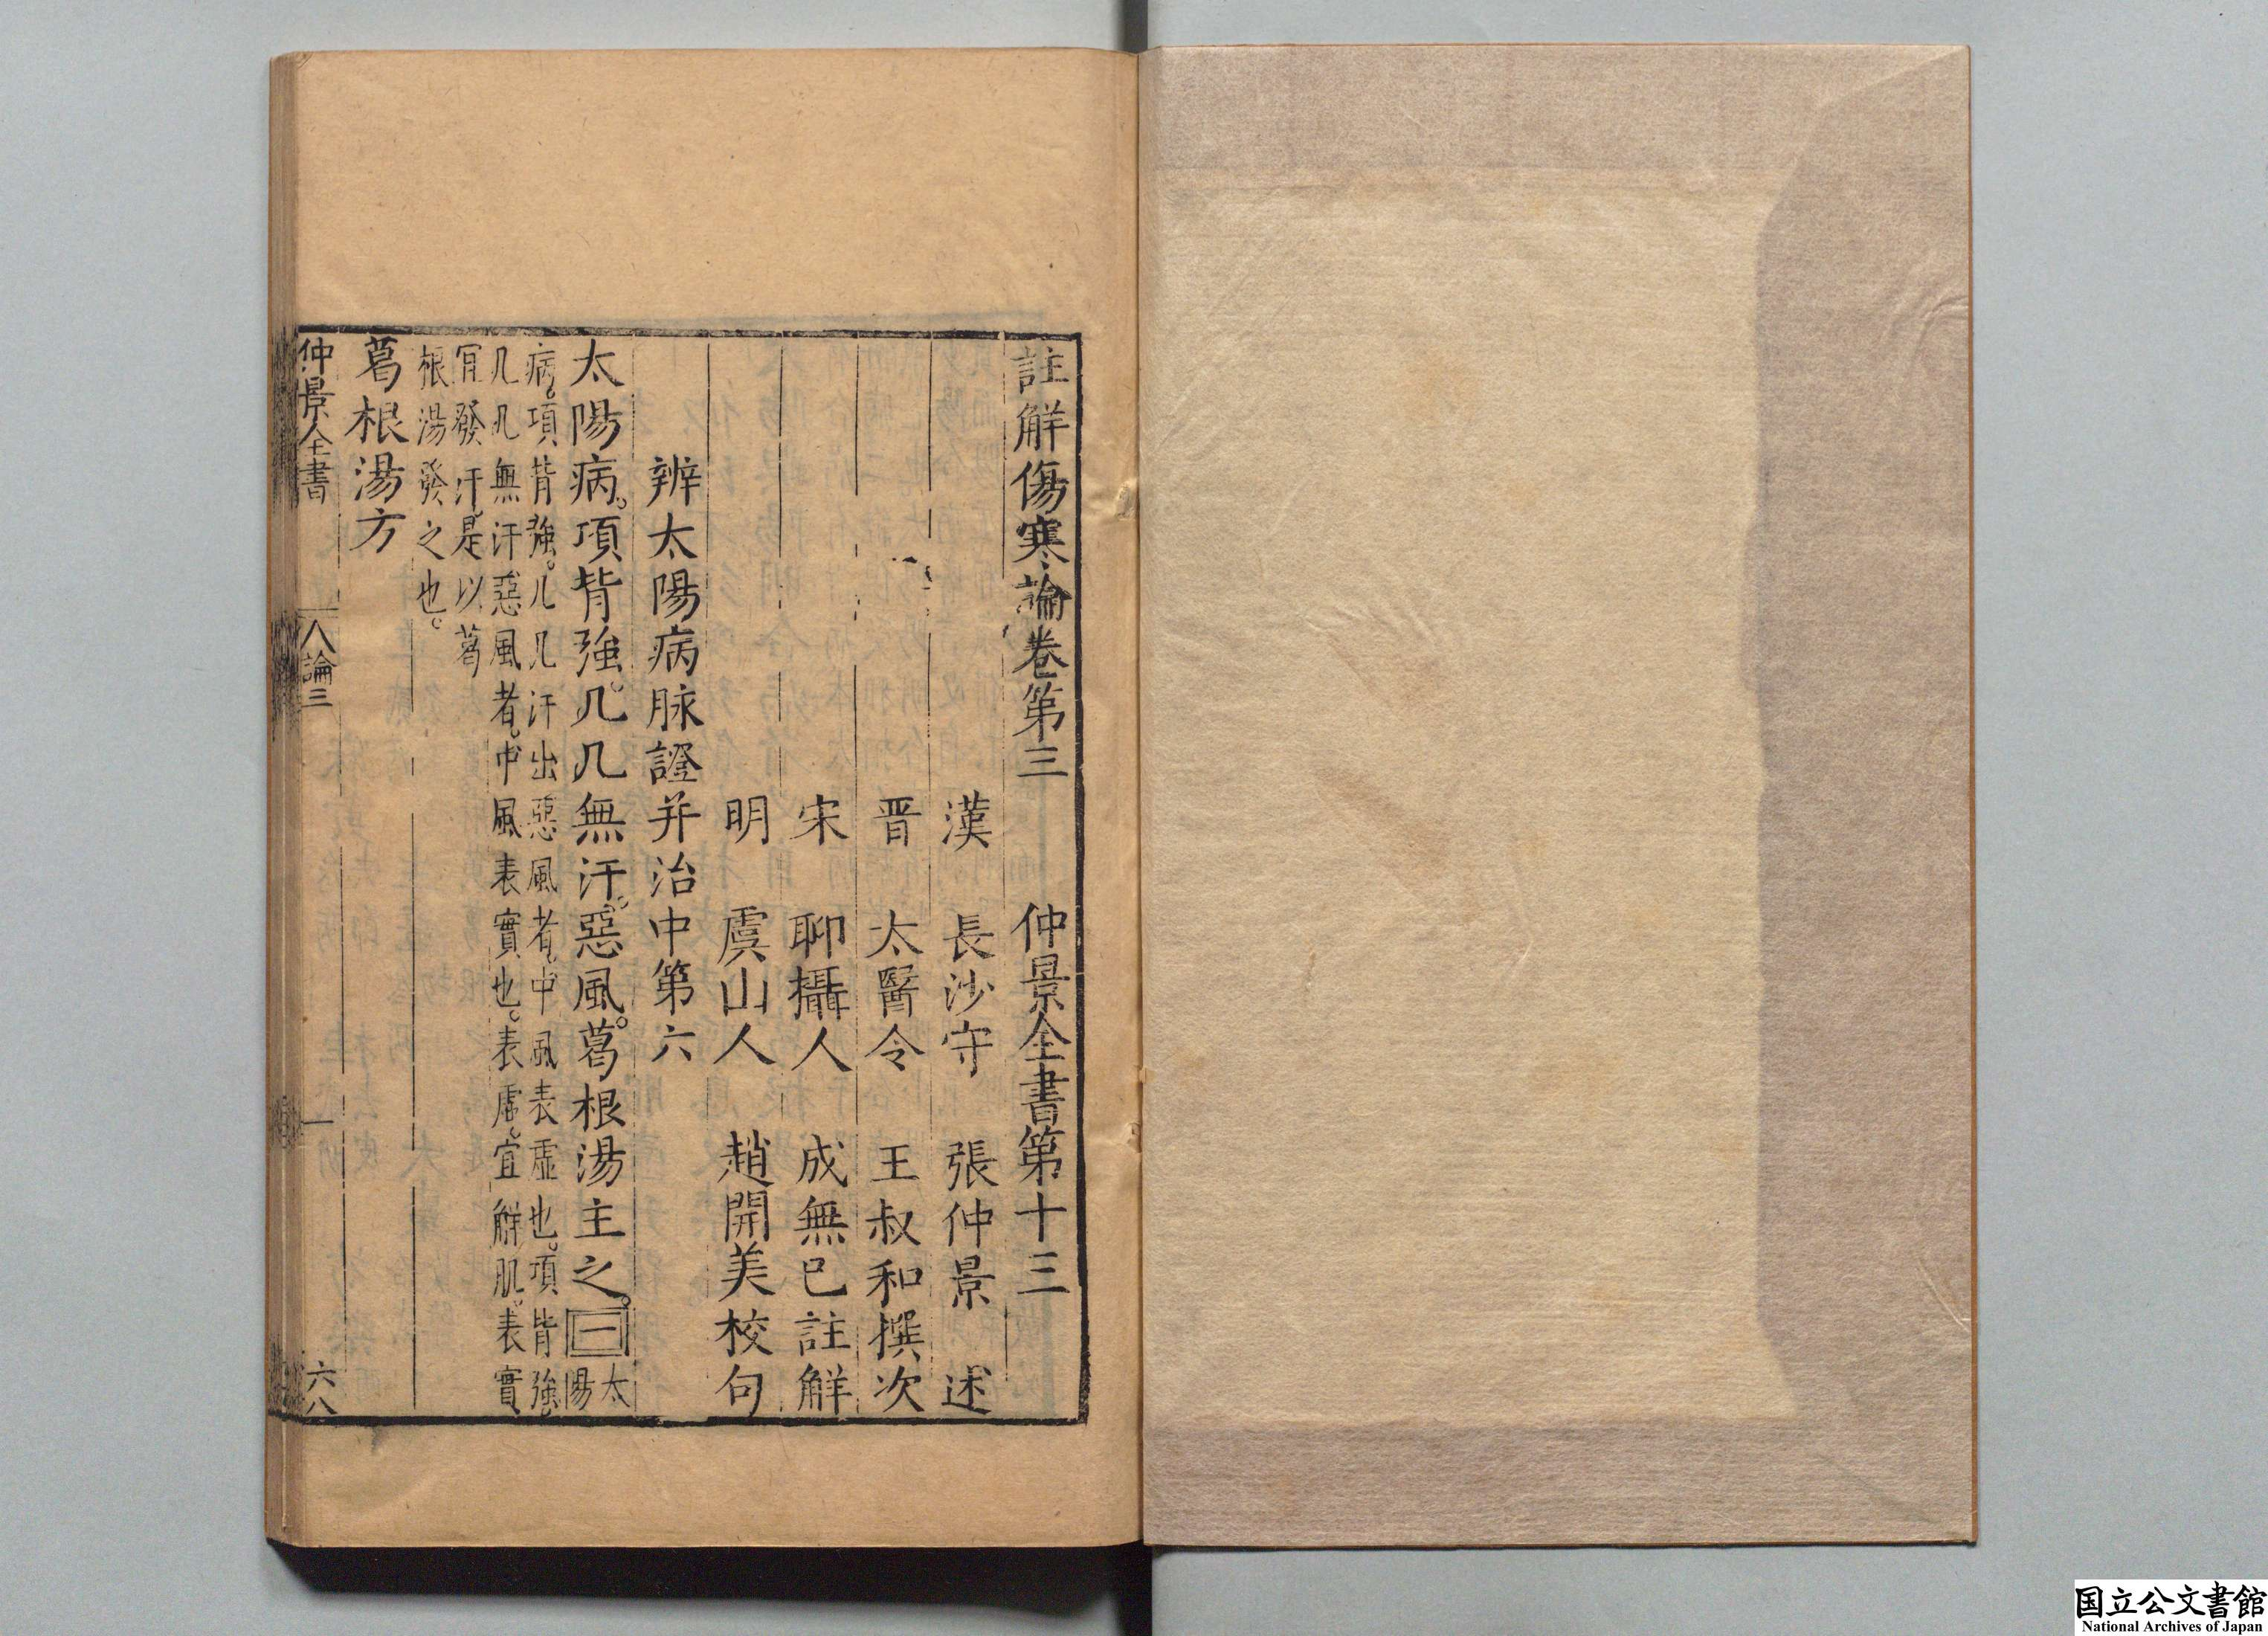 註解傷寒論卷第三　仲景全書第十三
漢　長沙守　張仲景　述
晋　太醫令　王叔和撰次
宋　聊攝人　成無已註解
明　虞山人　趙開美校句
辨太陽病脉證并治中第六
太陽病。項背強。几几無汗。惡風。葛根湯主之。一太陽
病。項背強。几几汗出惡風者。中風表虛也。項背強。
几几無汗惡風者。中風表實也。表虛。宜解肌。表實
宜發汗。是以葛
根湯發之也。
葛根湯方
仲景全書　論三　一　六八
国立公文書館
National Archives of Japan